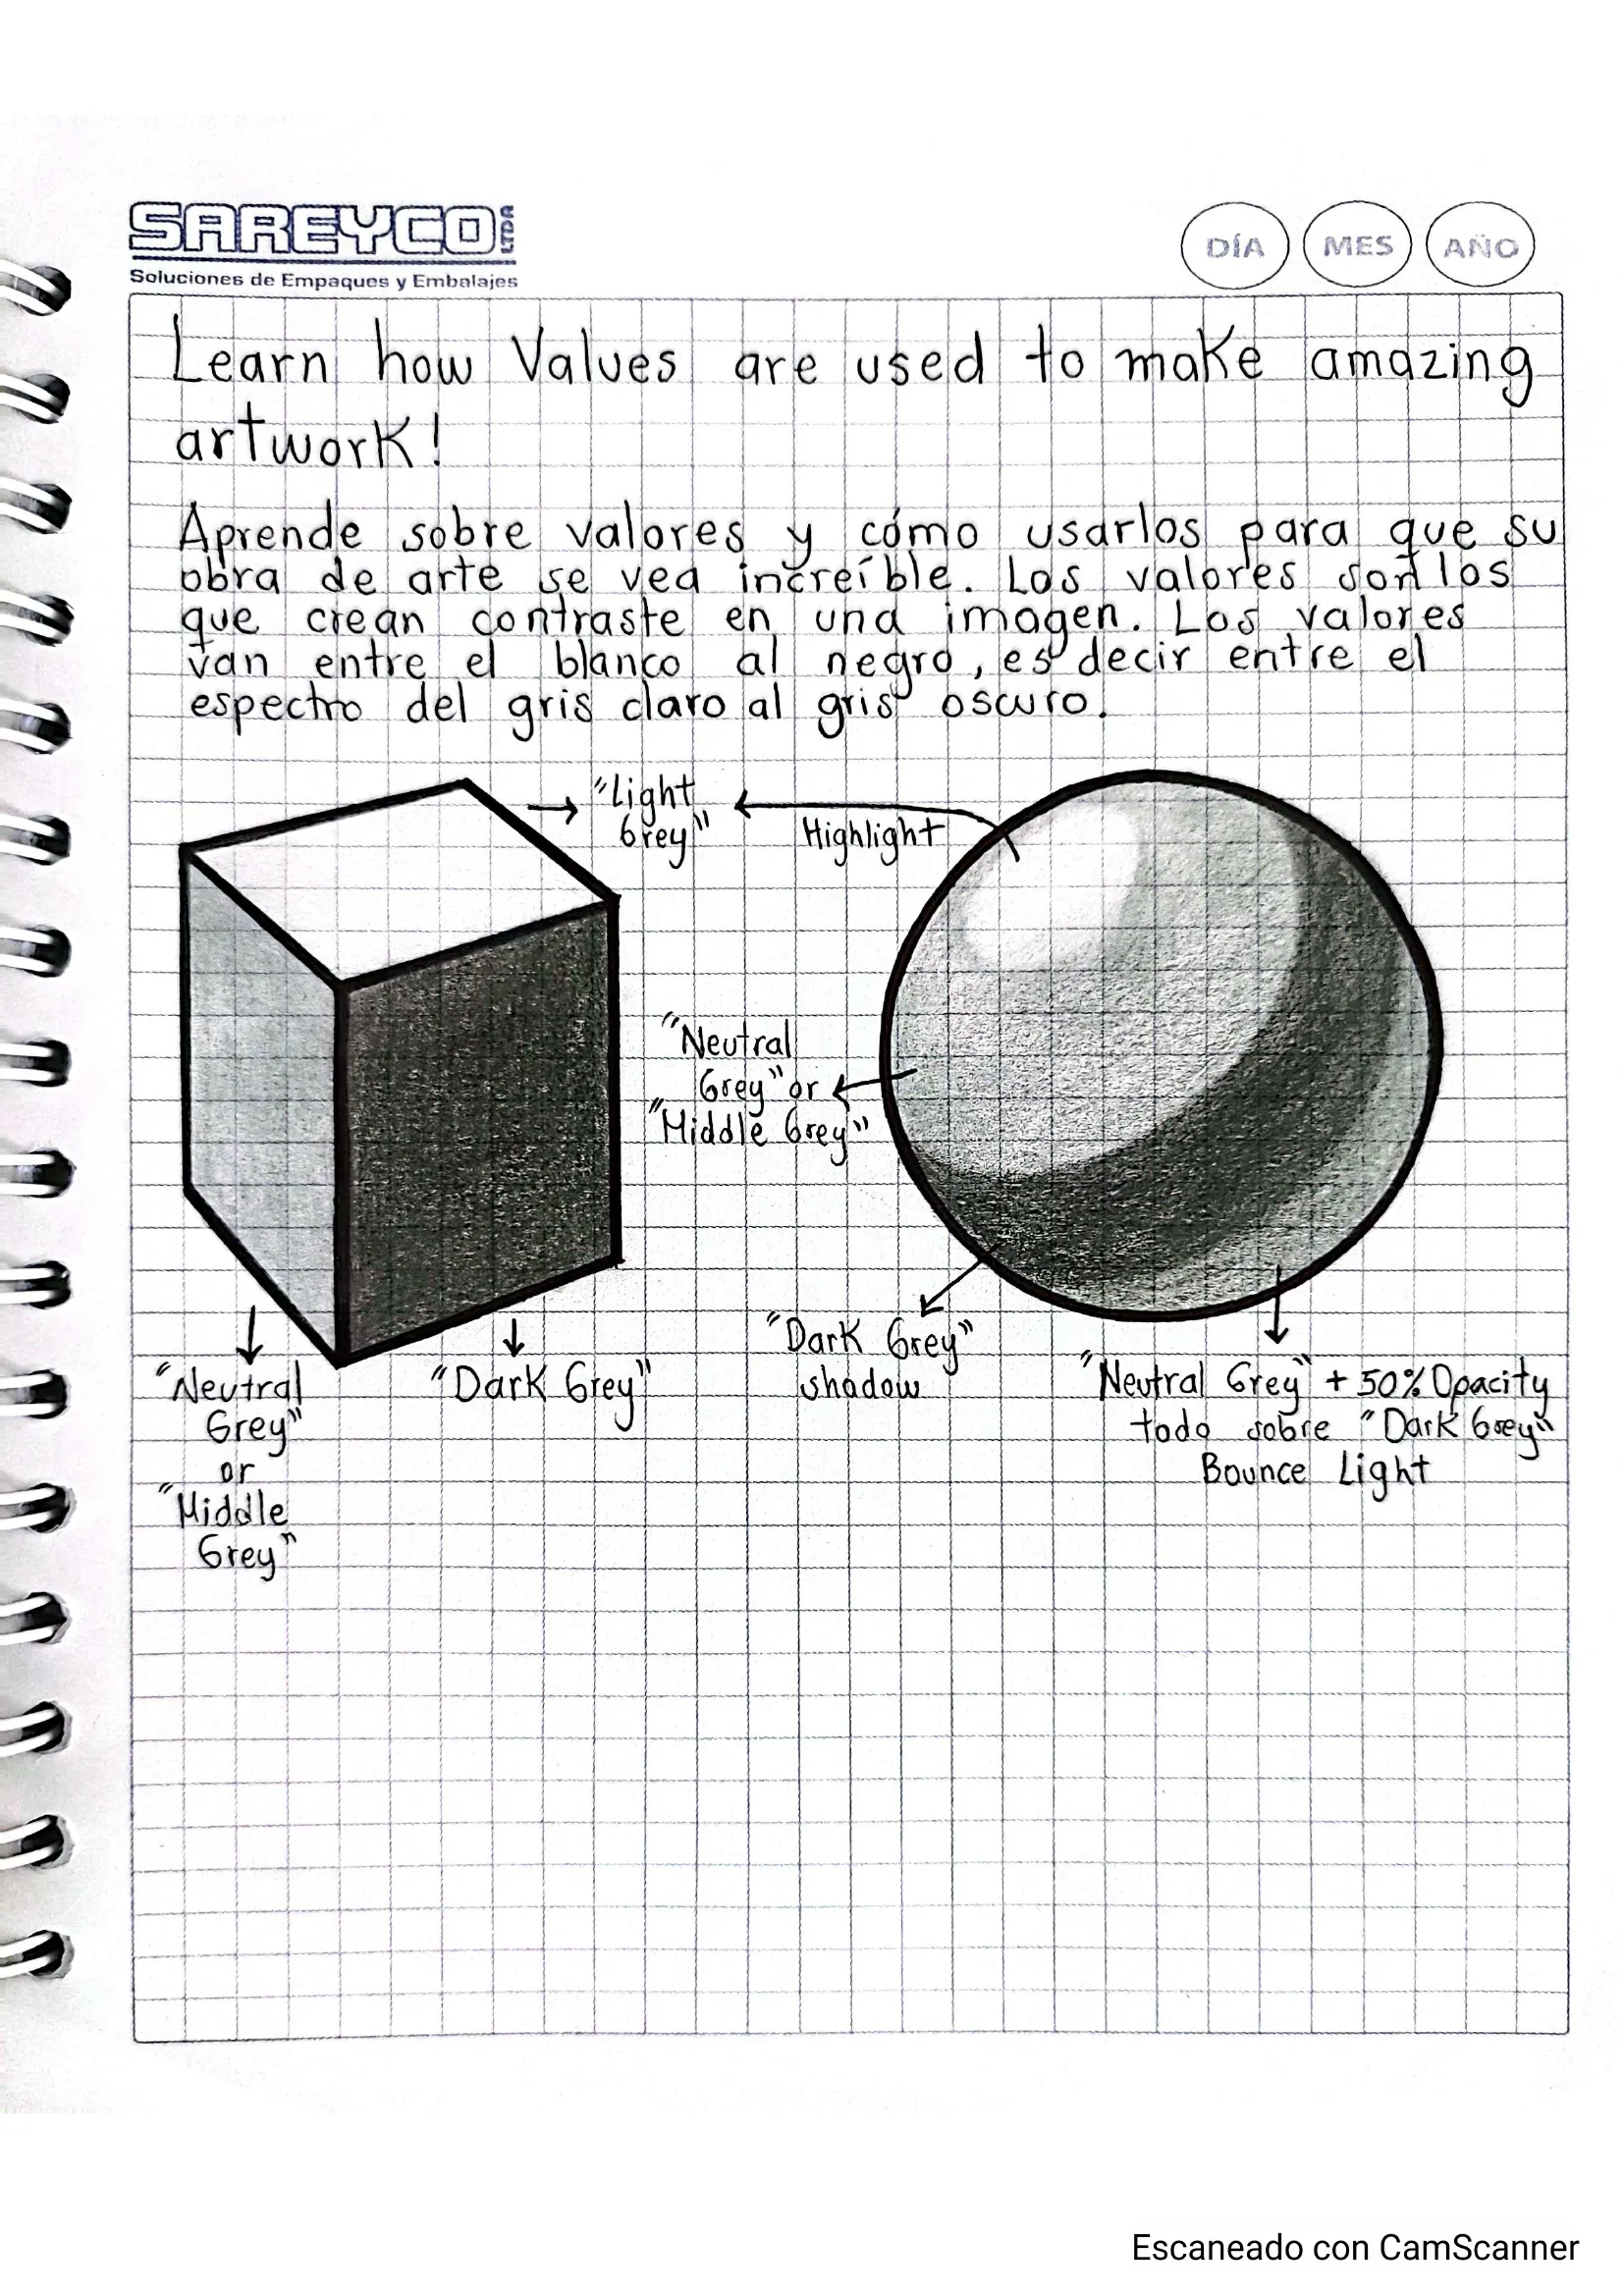 SAREYCO LTDA
Soluciones de Empaques y Embalajes
DÍA MES AÑO
Learn how Values are used to make amazing
artwork!
Aprende sobre valores y cómo usarlos para que su
obra de arte se vea increíble. Los valores son los
que crean contraste en una imagen. Los valores
van entre el blanco al negro, es decir entre el
espectro del gris claro al gris oscuro.
"Light
Grey"
Highlight
"Neutral
Grey" or
"Middle Grey"
"Dark Grey"
shadow
"Neutral Grey" + 50% Opacity
todo sobre "Dark Grey"
Bounce Light
"Neutral
Grey"
or
"Middle
Grey"
"Dark Grey"
Escaneado con CamScanner